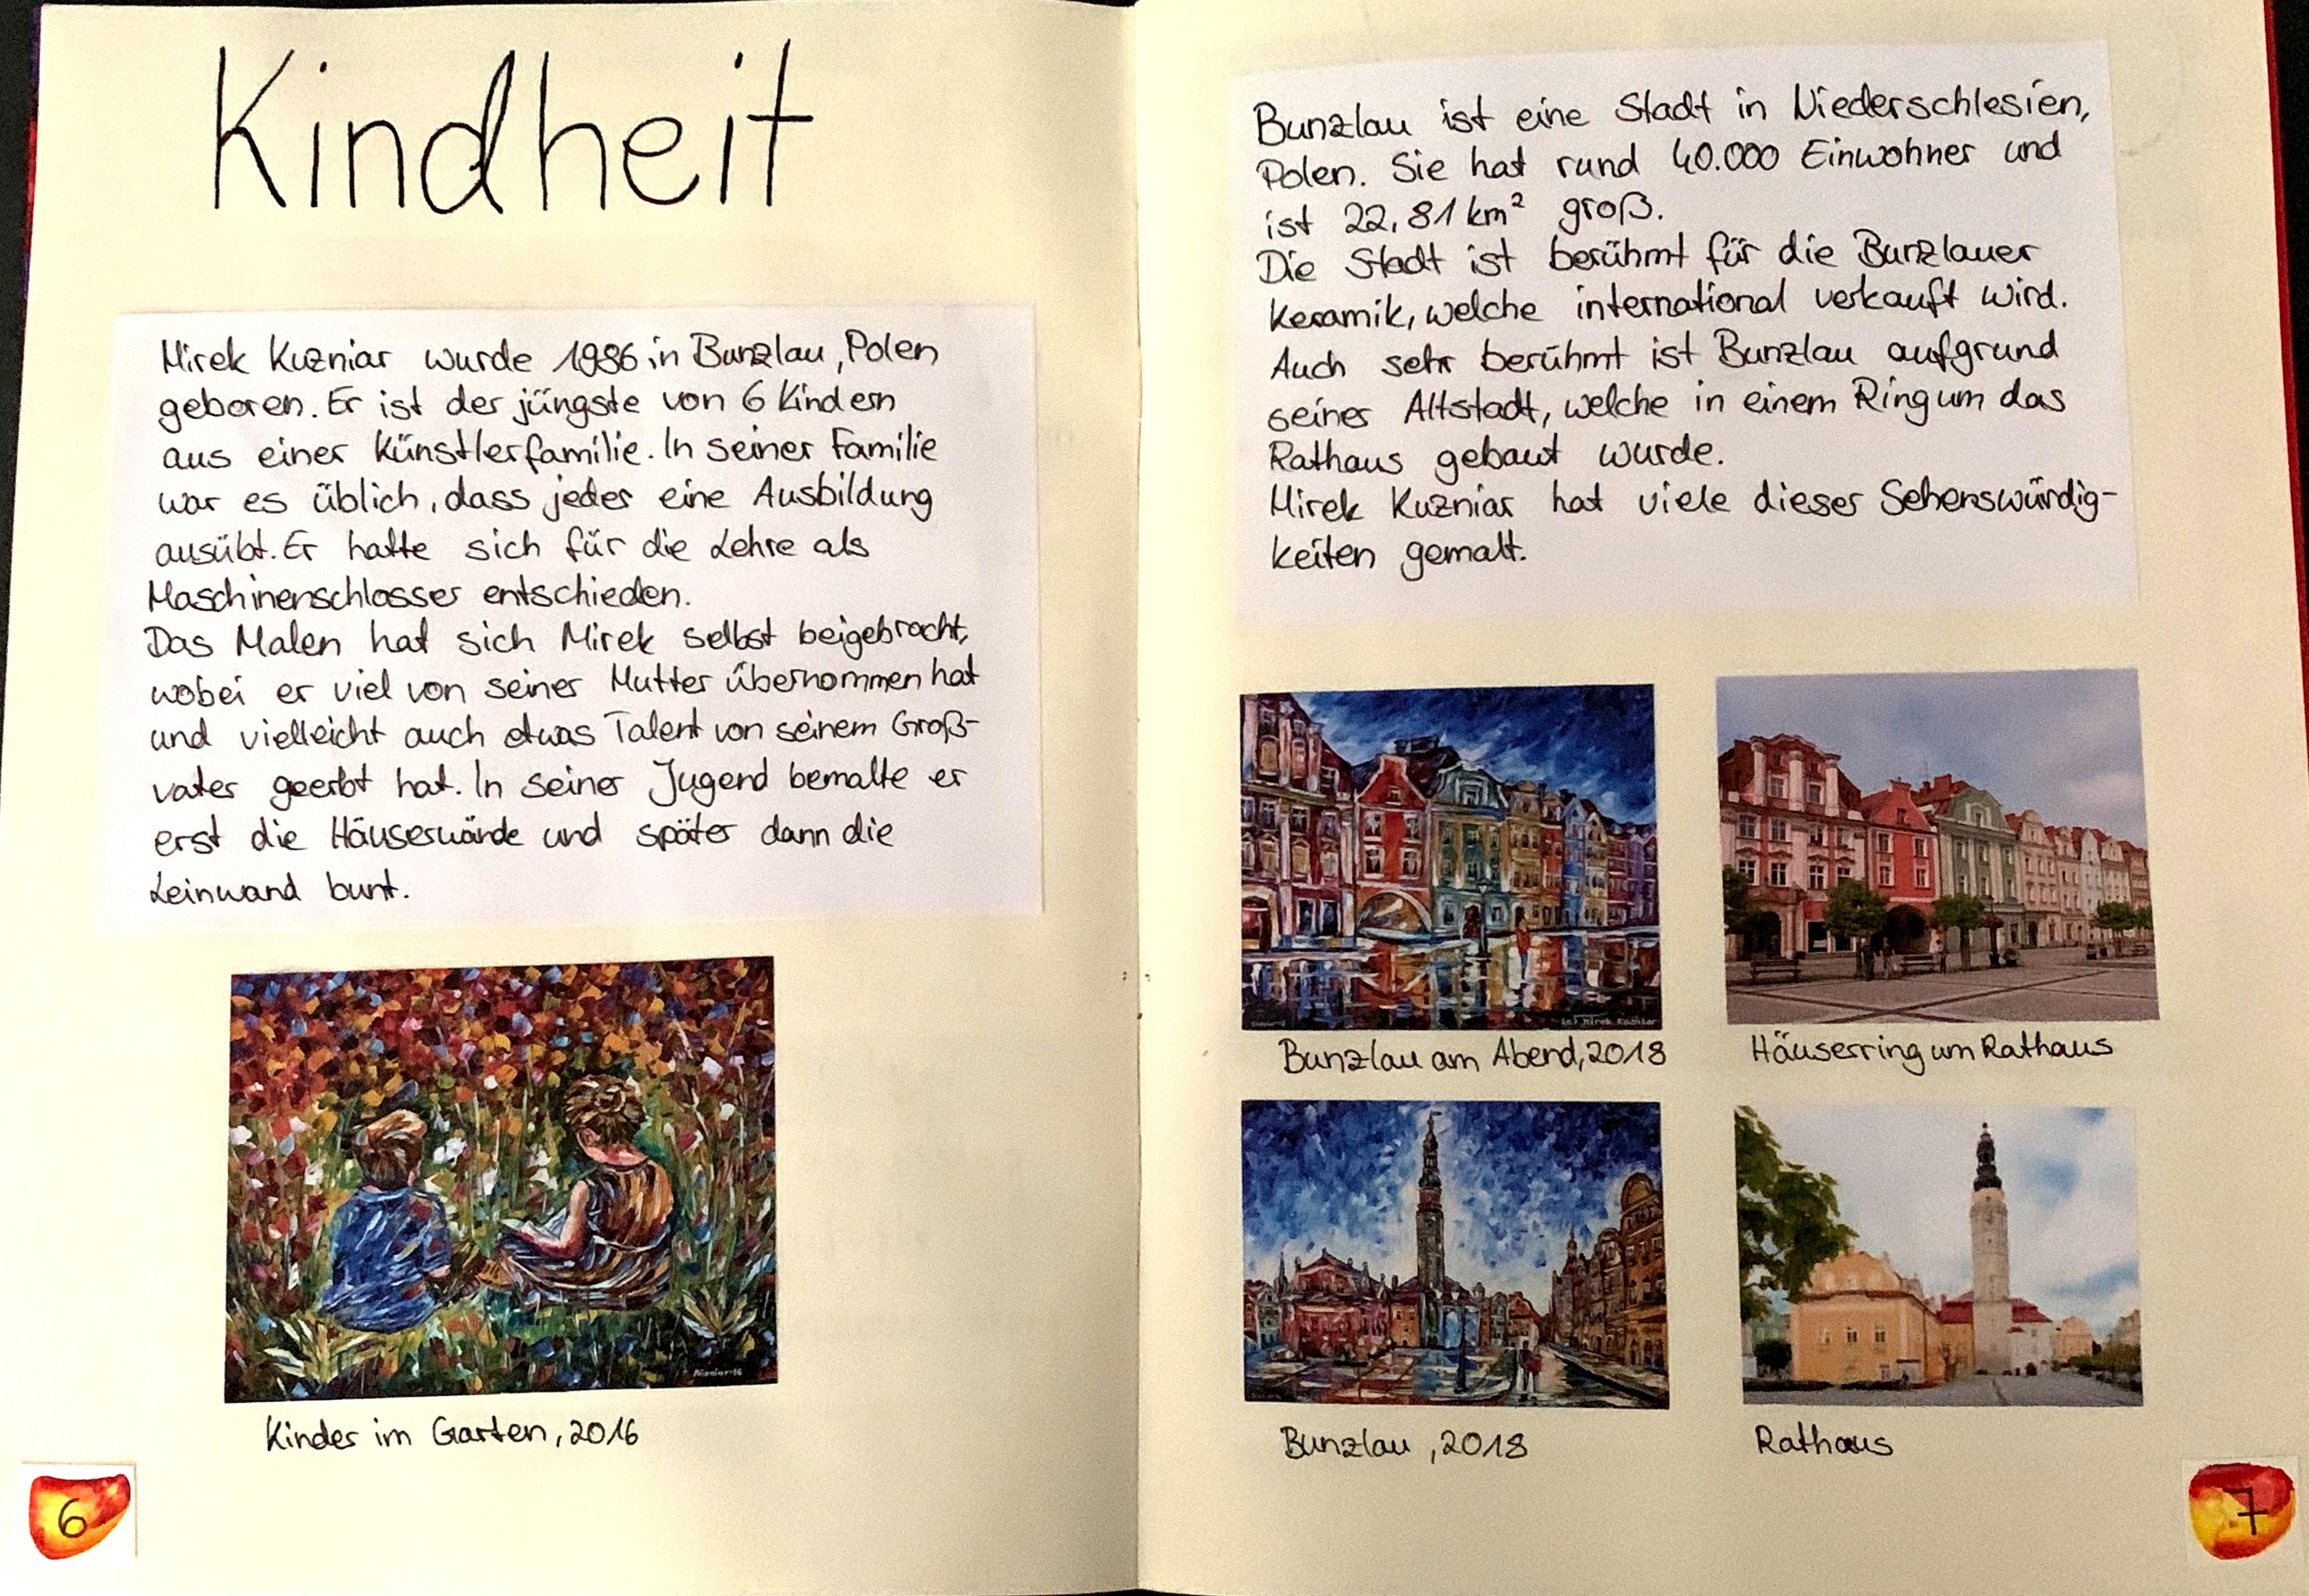 Kindheit
Mirek Kuzniar wurde 1986 in Bunzlau, Polen
geboren. Er ist der jüngste von 6 Kindern
aus einer Künstlerfamilie. In seiner Familie
war es üblich, dass jeder eine Ausbildung
ausübt. Er hatte sich für die Lehre als
Maschinenschlosser entschieden.
Das Malen hat sich Mirek selbst beigebracht,
wobei er viel von seiner Mutter übernommen hat
und vielleicht auch etwas Talent von seinem Groß-
vater geerbt hat. In seiner Jugend bemalte er
erst die Häuserwände und später dann die
Leinwand bunt.
Kinder im Garten, 2016
6
Bunzlau ist eine Stadt in Niederschlesien,
Polen. Sie hat rund 40.000 Einwohner und
ist 22,81 km² groß.
Die Stadt ist berühmt für die Bunzlauer
Keramik, welche international verkauft wird.
Auch sehr berühmt ist Bunzlau aufgrund
seiner Altstadt, welche in einem Ring um das
Rathaus gebaut wurde.
Mirek Kuzniar hat viele dieser Sehenswürdig-
keiten gemalt.
(c) Mirek Kuzniar
Bunzlau am Abend, 2018
Häuserring um Rathaus
Bunzlau, 2018
Rathaus
7